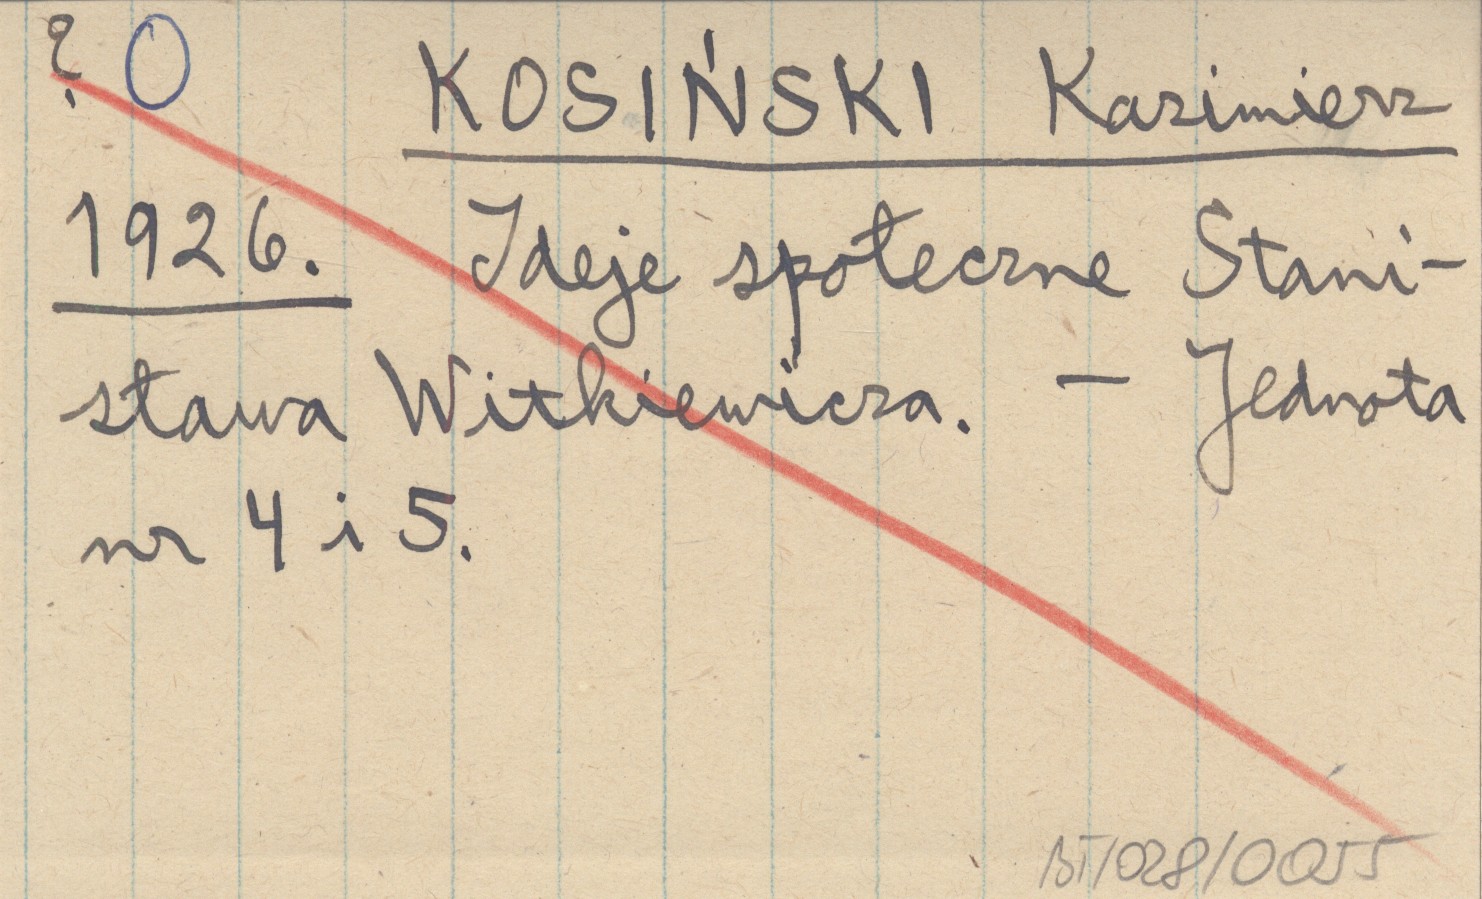 ? O KOSIŃSKI Kazimierz
1926. Ideje społeczne Stani-
sława Witkiewicza. — Jednota
nr 4 i 5.
BT/028/0055